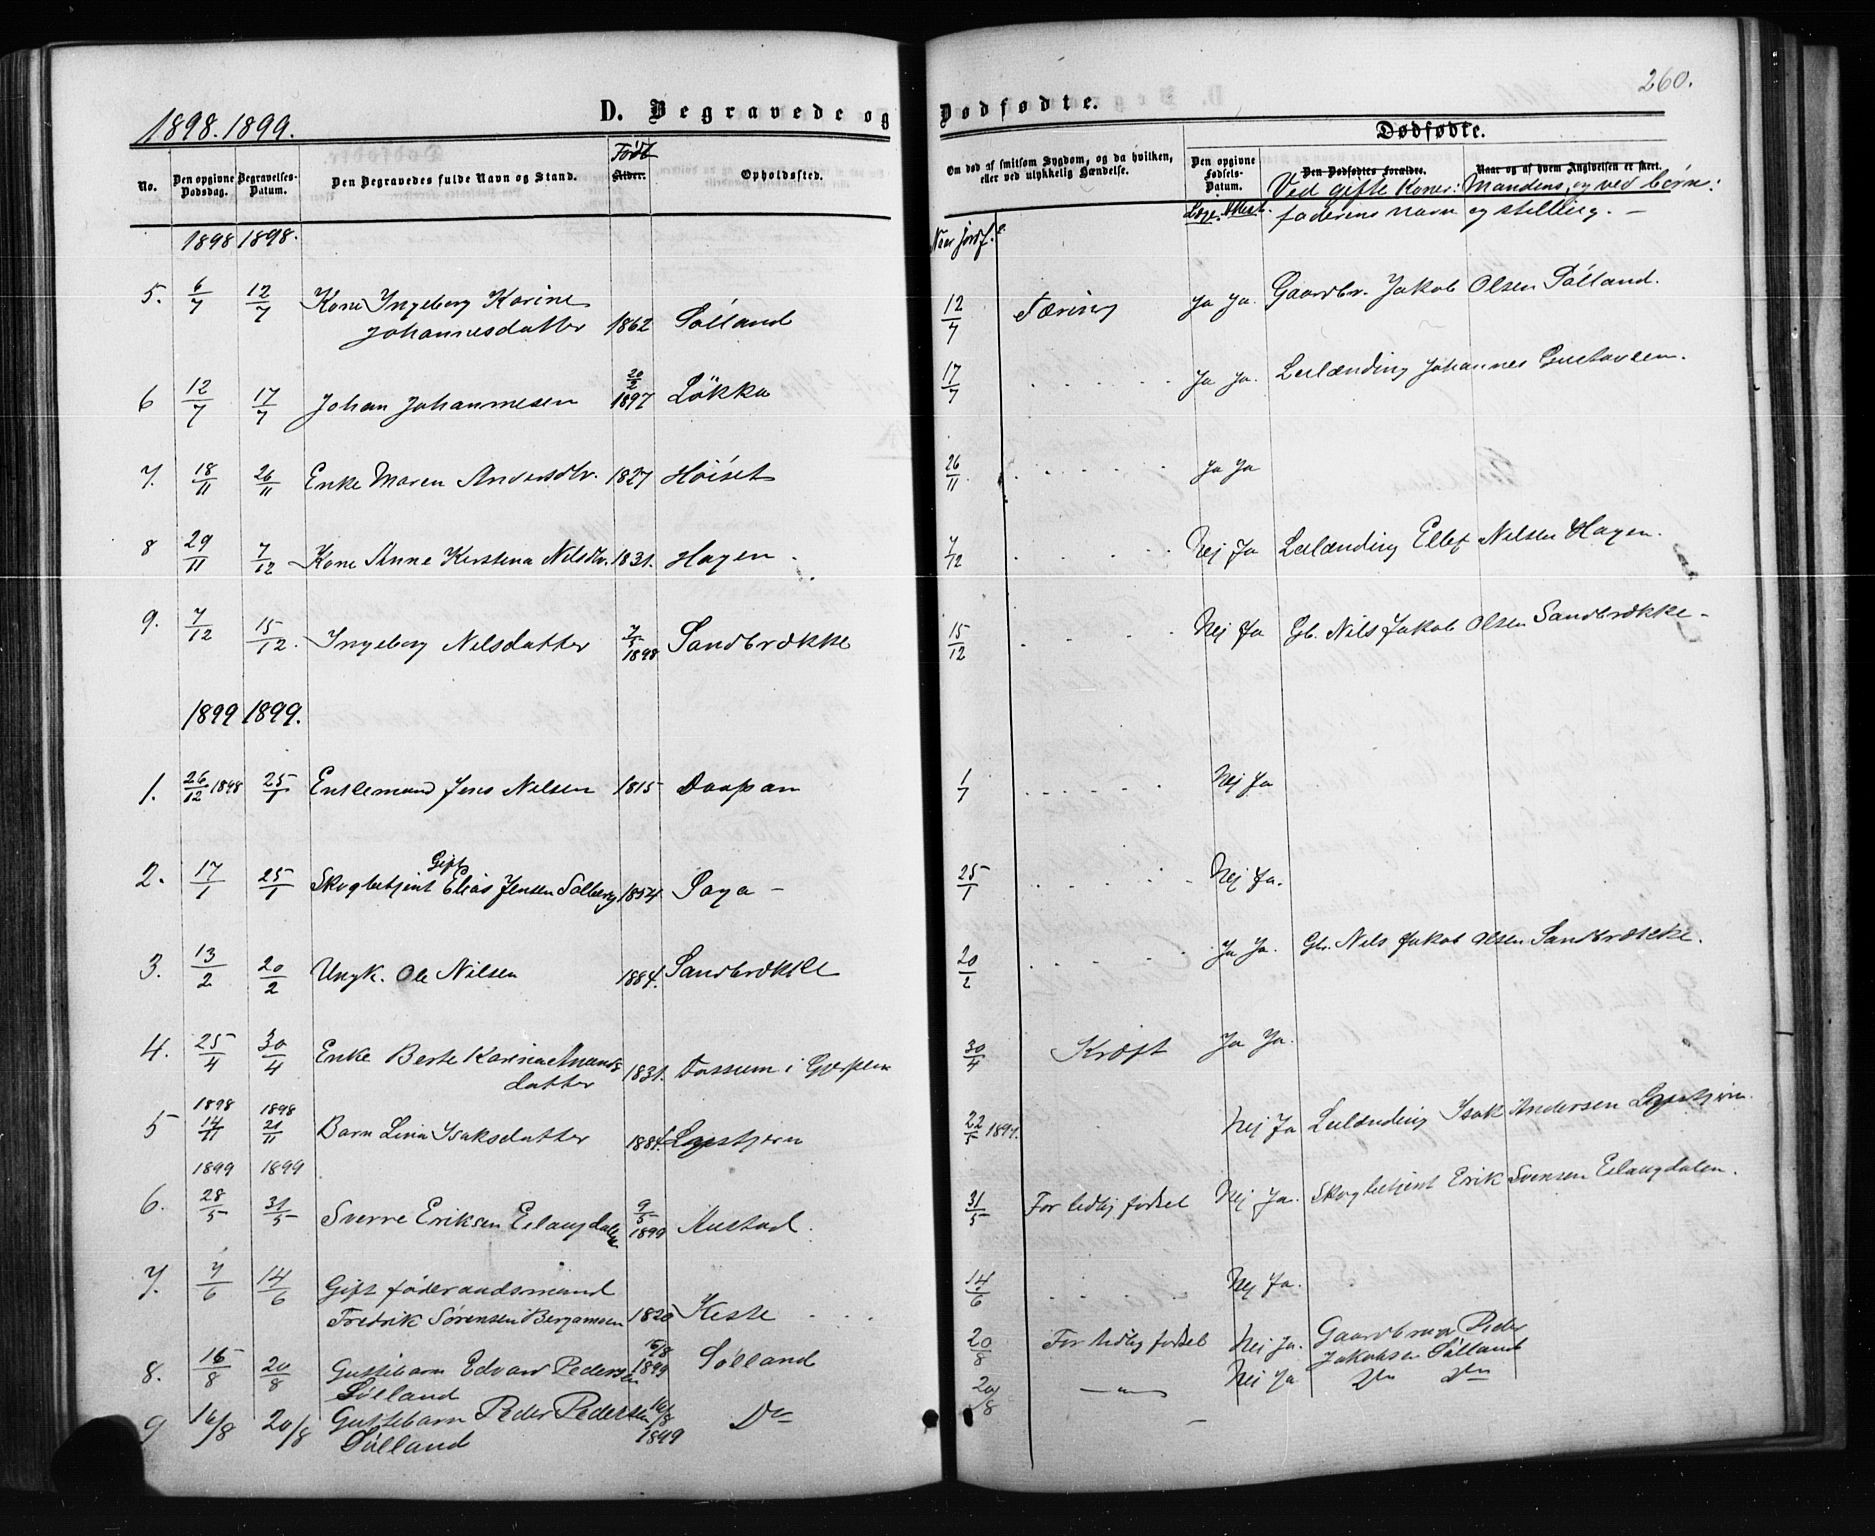 260.
1898. 1899.
D. Begravede og Dødfødte.
Dødfødte.
No.
Den opgivne Dødsdag.
Begravelses-Datum.
Den Begravedes fulde Navn og Stand.
Født
Alder.
Opholdssted.
Om død af smitsom Sygdom, og da hvilken, eller ved ulykkelig Hændelse.
Den opgivne Fødsels-Datum.
Den Dødfødtes Forældre.
Naar og af hvem Angivelsen er skeet.
Læge Attest.
Ved gifte Koner: Mandens, og ved børn:
faderens navn og stilling. –
1898 1898.
Naar jordf.
5. 6/7 12/7 Kone Ingeborg Karine
Johannesdatter 1862 Sølland 12/7 Tæring Ja Ja. Gaardbr. Jakob Olsen Sølland.
6 12/7 17/7 Johan Johannesen 20/2 1897 Løkka 17/7 Ja Ja. Leilænding Johannes Gustavsen.
7. 18/11 26/11 Enke Maren Andersdtr. 1827 Høiset 26/11 Ja Ja
8 29/11 7/12 Kone Anne Kirstina Nilsdtr. 1831. Hagen. 7/12 Nej Ja Leilænding Ellef Nilsen Hagen.
9. 7/12 15/12. Ingeborg Nilsdatter 1898 Sandbrække 15/12 Nej Ja Gb. Nils Jakob Olsen Sandbrække –
1899 1899.
1. 26/12 1898 25/1 Enkemand Jens Nilsen 1815 1/1 Nej Ja
2. 17/1 25/1 Skogbetjent Gift Elias Jensen Solberg 1854 Saga – 25/1 Nej Ja.
3. 13/2 20/2 Ungk. Ole Nilsen 1884. Sandbrække 20/2 Ja Ja. Gb. Nils Jakob Olsen Sandbrække.
4. 25/4 30/4 Enke Berte Karine
datter 1831. Fossum i Gjerpen 30/4 Kræft Ja Ja.
1898 1898
5 14/11 21/11 Barn Lina Isaksdatter 1884 22/5 1899. Nej Ja Leilænding Isak Andersen
1899 1899
6. 28/5 31/5 Sverre Eriksen Eslaugdalen 9/5 1899 Austad. 31/5 For tidlig fødsel Nej Ja. Skogbetjent Erik Svensen Eslaugdalen.
7. 7/6 14/6 Gift føderaadsmand
Fredrik Sørensen Bergansen 1820 Keste 14/6 Nej Ja.
8. 16/8 20/8 Guttebarn Edvard Pedersen
Sølland 16/8 1899 Sølland 20/8 For tidlig fødsel Nej Ja. Gaardbruger Peder
Jakobsen Sølland
9 16/8 20/8 Guttebarn Peder Pedersen
Sølland 16/8 1899 Do 20/8 – „ – Nej Ja Do Do